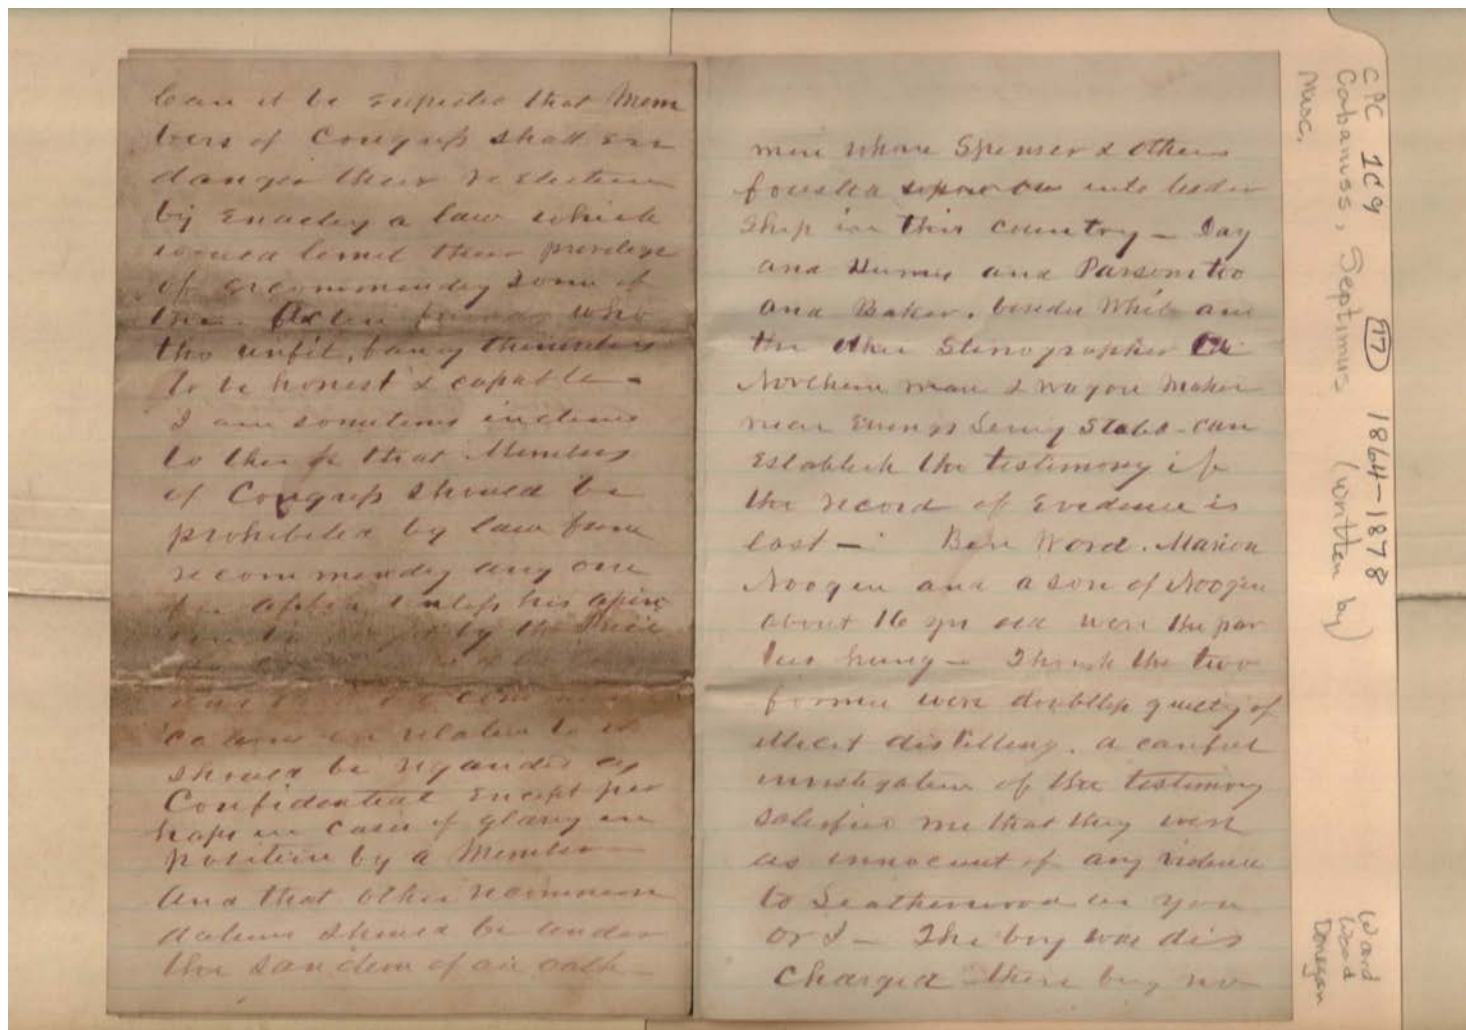 Can it be expected that Mem
bers of Congress shall en
danger their re election
by enacting a law which
would limit their privilege
of recommending some of
the who
tho unfit, fancy themselves
to be honest & capable -
I am sometimes inclined
to think that Members
of Congress should be
prohibited by law from
recommending any one
for office unless his opin
ion by the Presi
cations in relation to it
should be regarded as
Confidential Except per
haps in cases of glaring im
position by a Member
And that other recommen
dations should be under
the sanction of an oath -
men whom Spenser & others
forced into leader
ship in this country - Day
and and Parsons too
and Baker, besides White and
the other Stenographer
Northern man & wagon maker
near Livery Stable - can
Establish the testimony if
the record of Evidence is
lost - Ben Word, Marion
Noogin and a son of Noogin
about 16 yrs old were the par
ties hung - I think the two
former were doubtless guilty of
illicit distilling. a careful
investigation of the testimony
satisfied me that they were
as innocent of any violence
to Leatherwood as you
or I - The boy was dis
charged there being no
CPC 1C9 77 1864-1878
Cabaniss, Septimus (written by)
Misc.
Ward
Word
Donegan